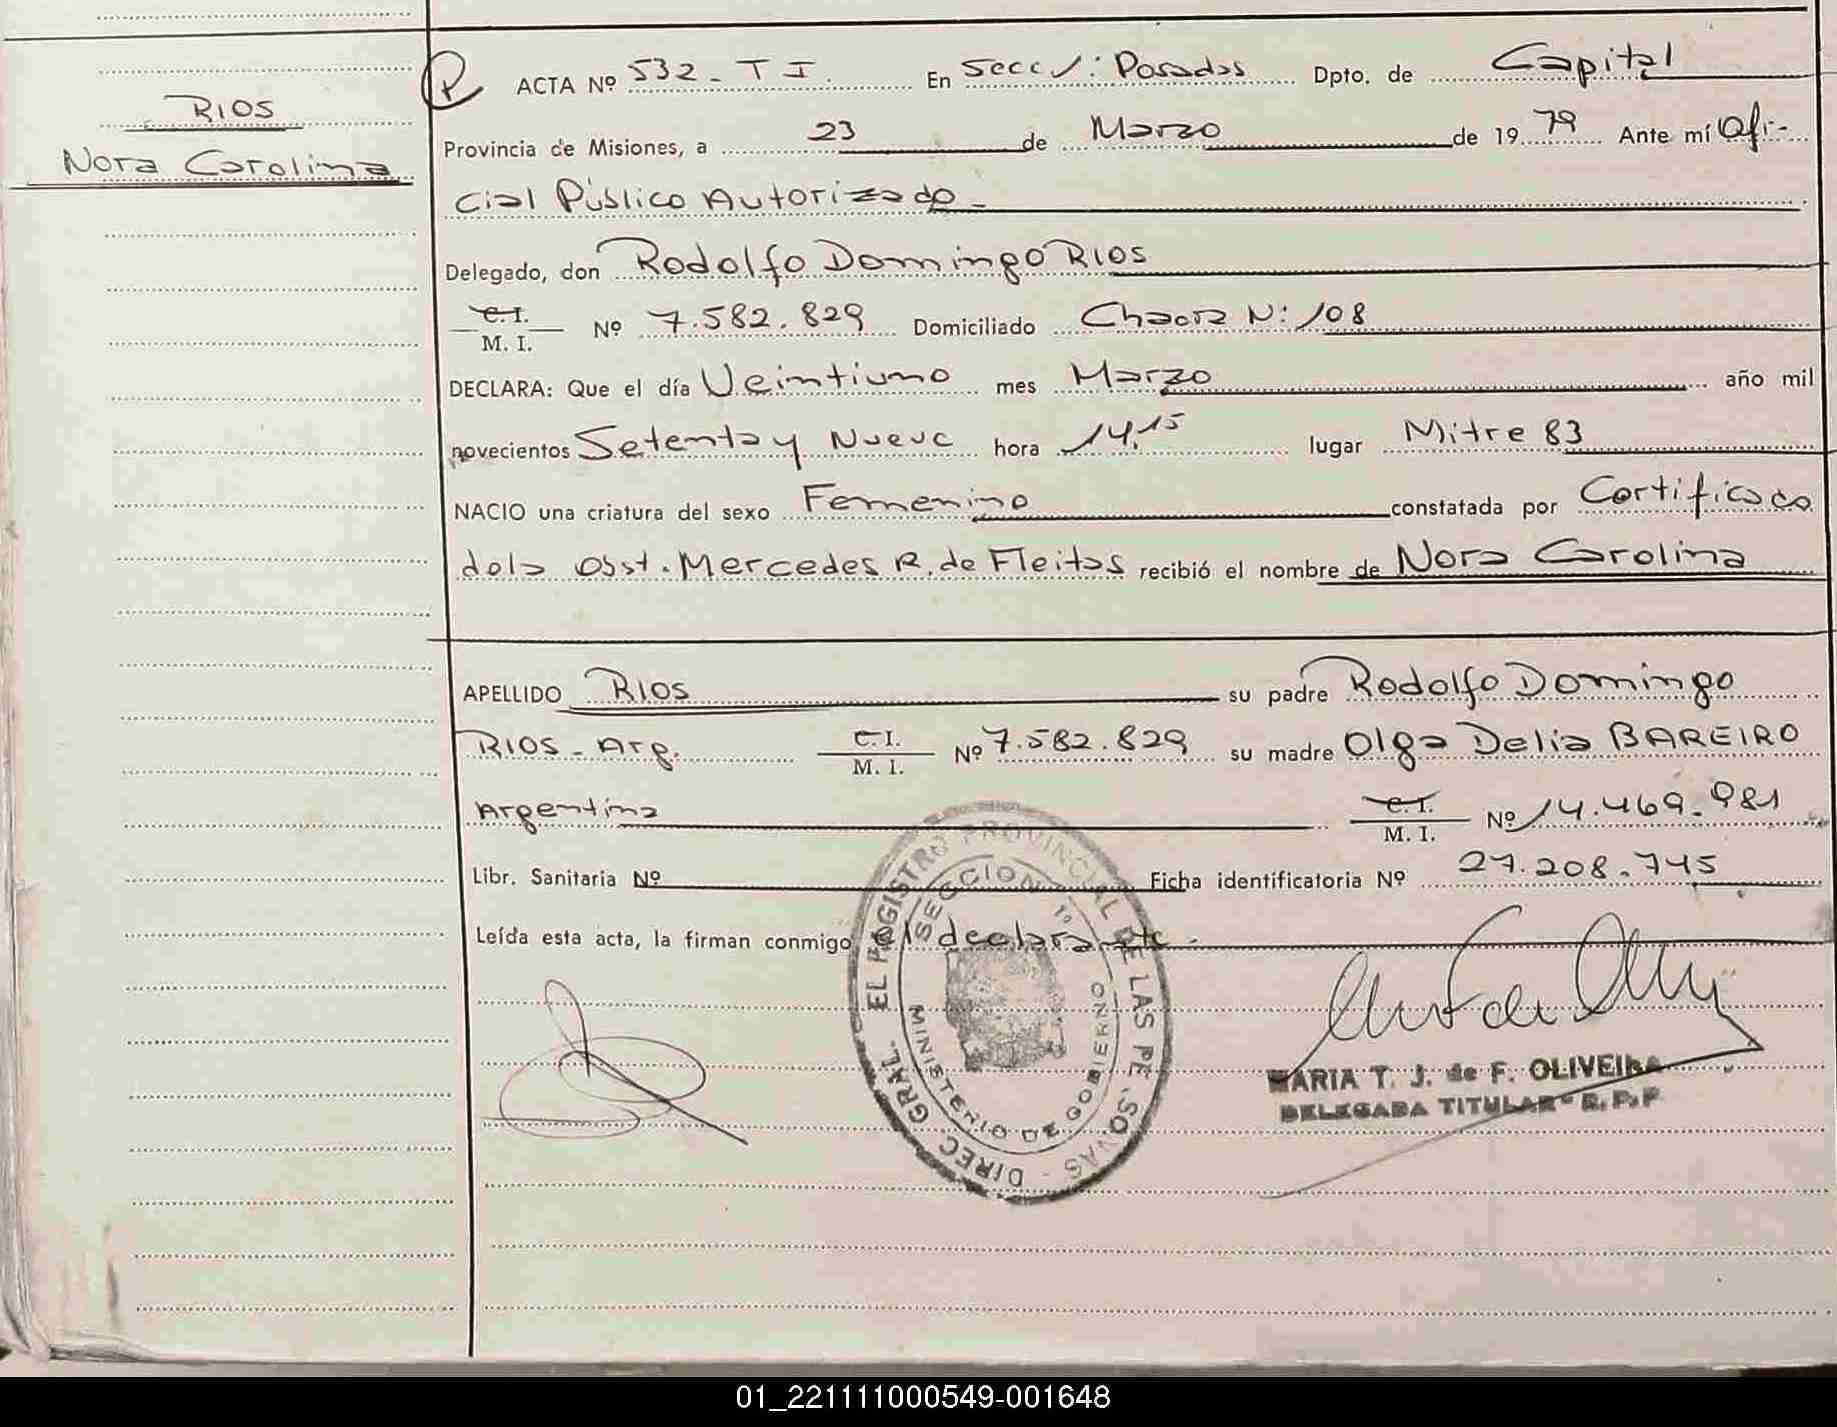 RIOS
Nora Carolina
P
ACTA Nº 532 - T I. En Secc 1: Posadas Dpto. de Capital
Provincia de Misiones, a 23 de Marzo de 1979 Ante mí Ofi-
cial Público Autorizado -
Delegado, don Rodolfo Domingo RIOS
C. I.
M. I. Nº 7.582.829 Domiciliado Chacra N: 108
DECLARA: Que el día Veintiuno mes Marzo año mil
novecientos Setenta y Nueve hora 14,15 lugar Mitre 83
NACIO una criatura del sexo Femenino constatada por Certificado
de la Obst. Mercedes R. de Fleitas recibió el nombre de Nora Carolina
APELLIDO RIOS su padre Rodolfo Domingo
RIOS - Arg. C. I.
M. I. Nº 7.582.829 su madre Olga Delia BAREIRO
Argentina C. I.
M. I. Nº 14.469.981
Libr. Sanitaria Nº Ficha identificatoria Nº 27.208.745
Leída esta acta, la firman conmigo el declarante -
DIREC. GRAL. EL REGISTRO PROVINCIAL DE LAS PE.SONAS
SECCION 1º
MINISTERIO DE GOBIERNO
MARIA T. J. de F. OLIVEIRA
DELEGADA TITULAR - R. P. P.
01_221111000549-001648